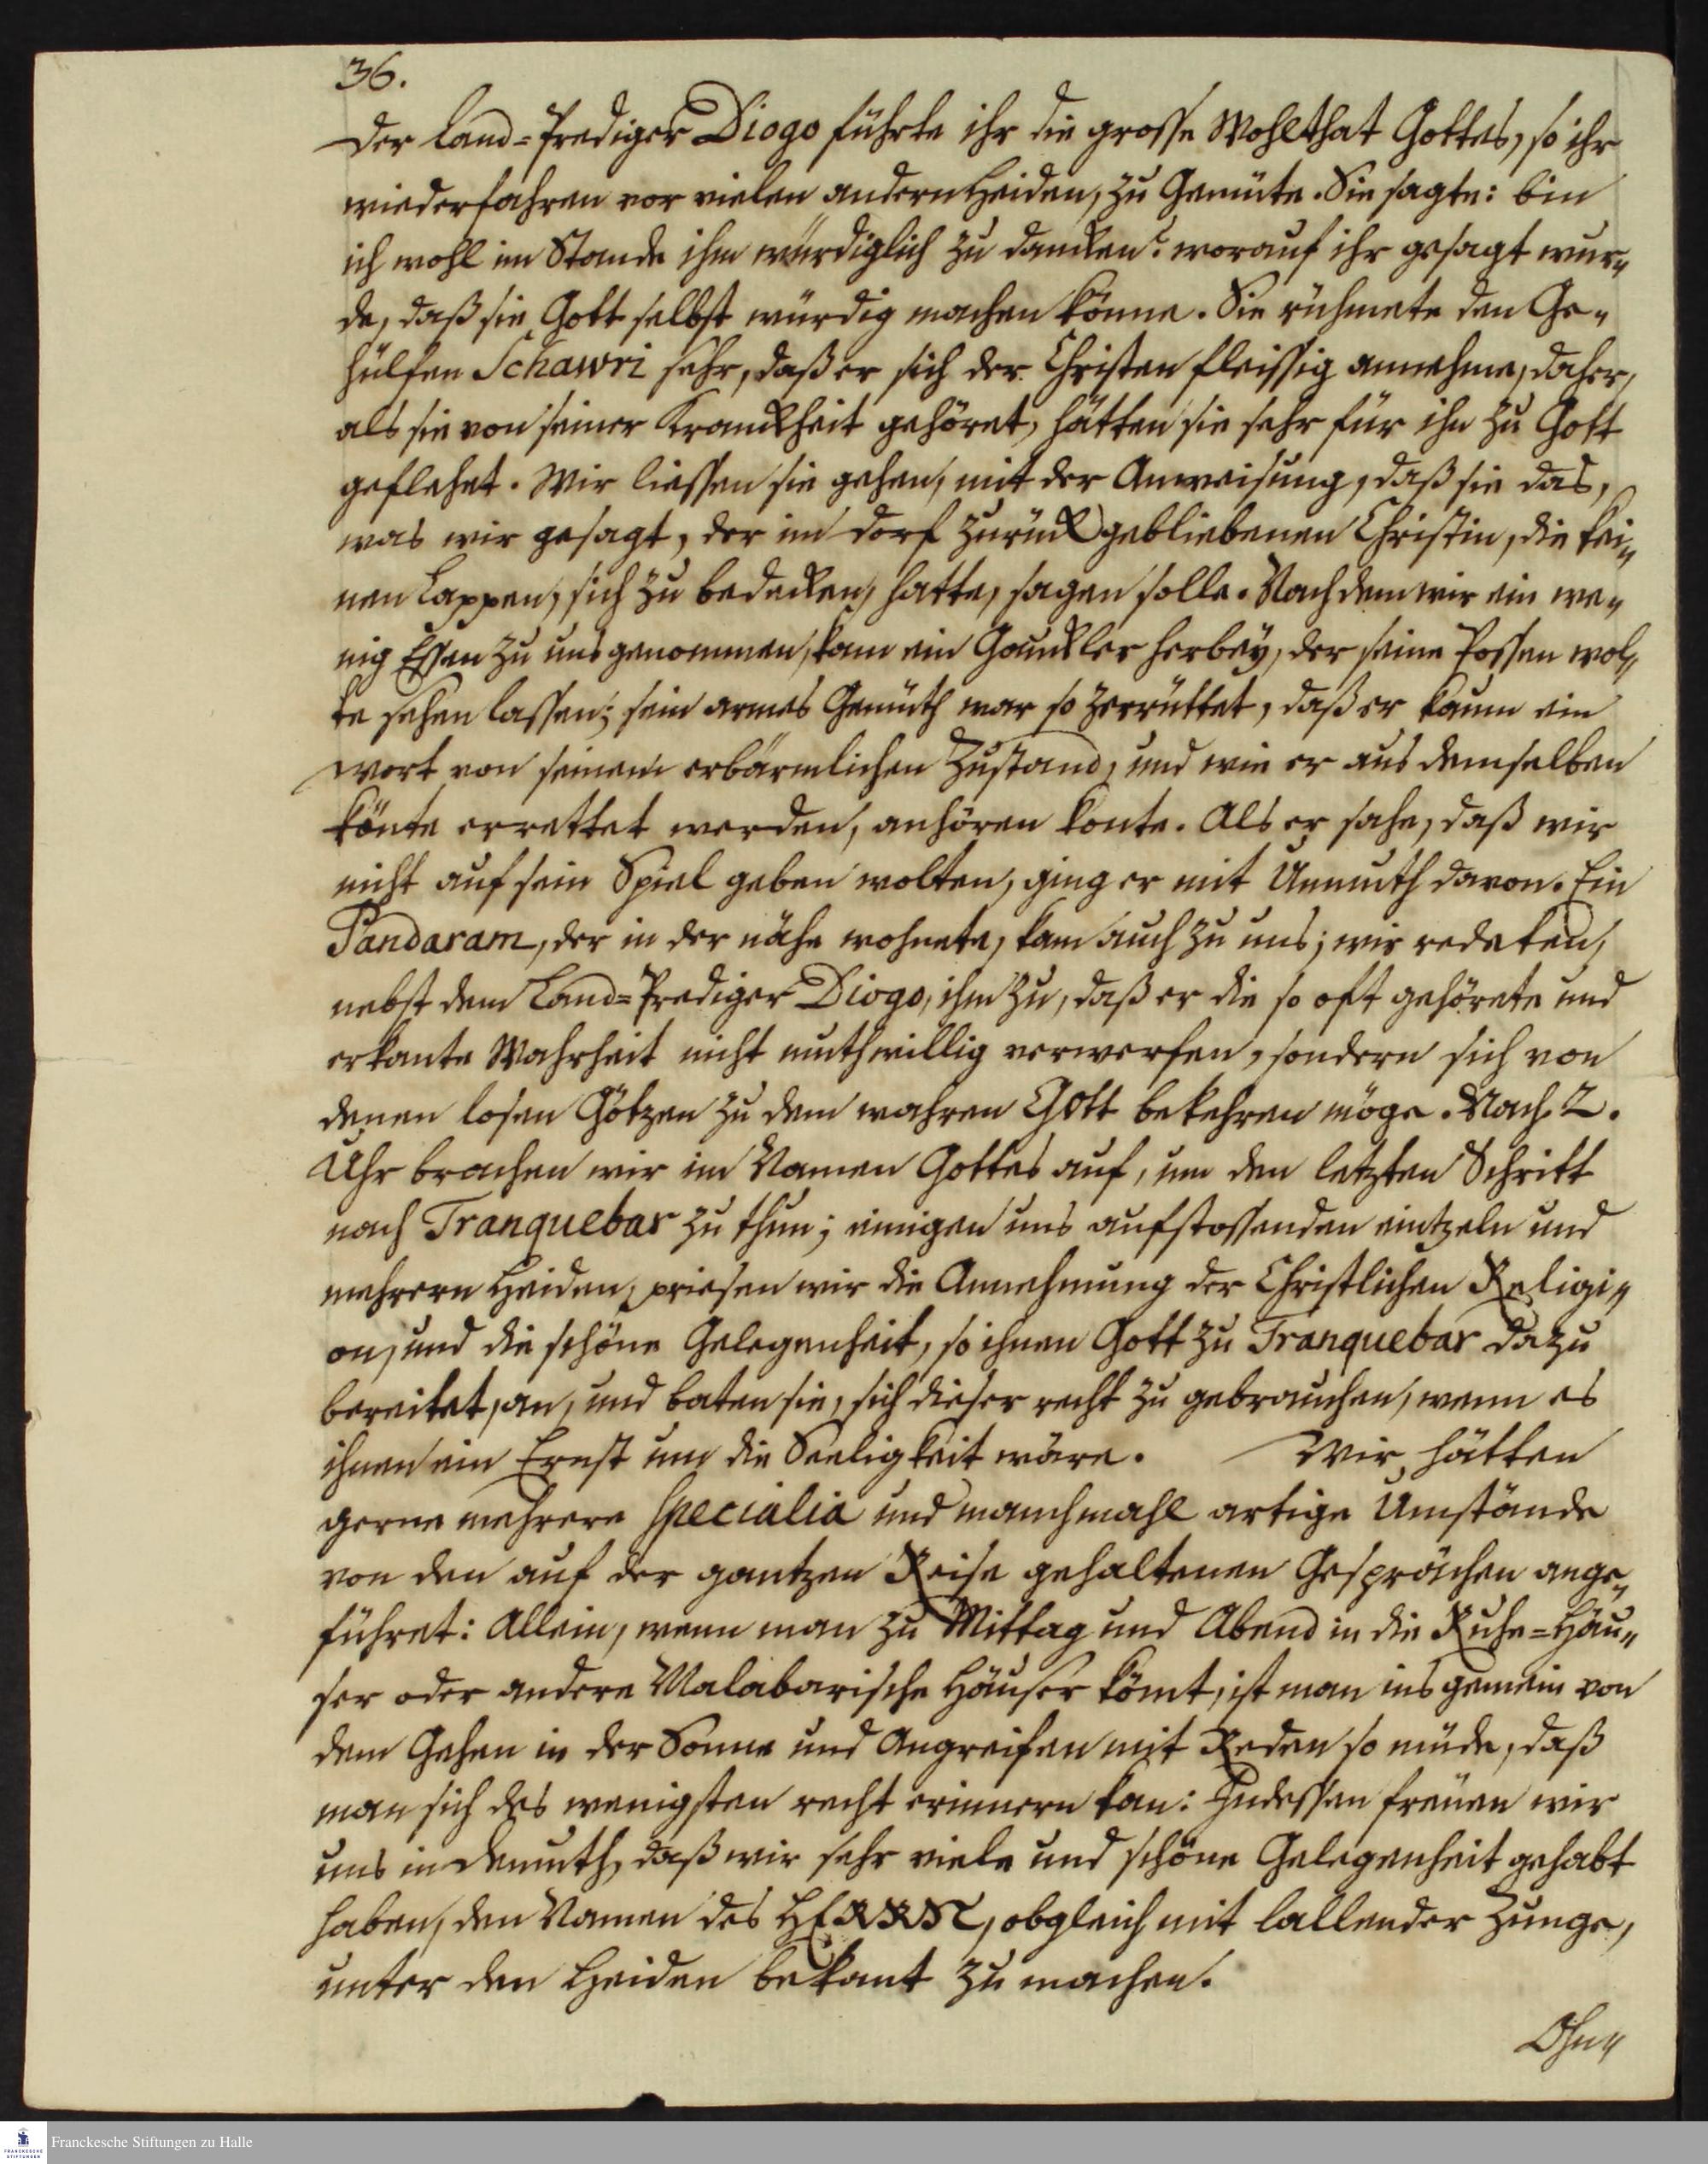 36.
Der Land=Prediger Diogo führte ihr die grosse Wohlthat Gottes, so ihr
wiederfahren vor vielen andern Heiden, zu Gemüte. Sie sagte: bin
ich wohl im Stande ihm würdiglich zu dancken? worauf ihr gesagt wur„
de, daß sie Gott selbst würdig machen könne. Sie rühmete den Ge„
hülfen Schawri sehr, daß er sich der Christen fleissig annehme, daher,
als sie von seiner Kranckheit gehöret, hätten sie sehr für ihn zu Gott
geflehet. Wir liessen sie gehen, mit der Anweisung, daß sie das,
was wir gesagt, der im Dorf zurück gebliebenen Christin, die kei„
nen Lappen, sich zu bedecken, hatte, sagen solle. Nachdem wir ein we„
nig Essen zu uns genommen, kam ein Gauckler herbey, der seine Possen wol„
te sehen lassen; sein armes Gemüth war so zerrüttet, daß er kaum ein
Wort von seinem erbärmlichen Zustand, und wie er aus demselben
könte errettet werden, anhören konte. Als er sahe, daß wir
nicht auf sein Spiel geben wolten, ging er mit Unmuth davon. Ein
Pandaram, der in der nähe wohnete, kam auch zu uns; wir redeten,
nebst dem Land=Prediger Diogo, ihm zu, daß er die so oft gehörete und
erkante Wahrheit nicht muthwillig verwerfen, sondern sich von
denen losen Götzen zu dem wahren Gott bekehren möge. Nach 2.
Uhr brachen wir im Namen Gottes auf, um den letzten Schritt
nach Tranquebar zu thun; einigen uns aufstossenden eintzeln und
mehrern Heiden, priesen wir die Annehmung der Christlichen Religi„
on, und die schöne Gelegenheit, so ihnen Gott zu Tranquebar dazu
bereitet, an, und baten sie, sich dieser recht zu gebrauchen, wenn es
ihnen ein Ernst um die Seeligkeit wäre. Wir hätten
gerne mehrere Specialia und manchmahl artige Umstände
von den auf der gantzen Reise gehaltenen Gesprächen ange„
führet: Allein, wenn man zu Mittag und Abend in die Ruhe=Häu„
ser oder andere Malabarische Häuser kömt, ist man ins gemein von
dem Gehen in der Sonne und Angreifen mit Reden so müde, daß
man sich des wenigsten recht erinnern kan: Indessen freuen wir
uns in Demuth, daß wir sehr viele und schöne Gelegenheit gehabt
haben, den Namen des HERRN, obgleich mit lallender Zunge,
unter den Heiden bekant zu machen.
Ohn„
FRANCKESCHE
STIFTUNGEN
Franckesche Stiftungen zu Halle